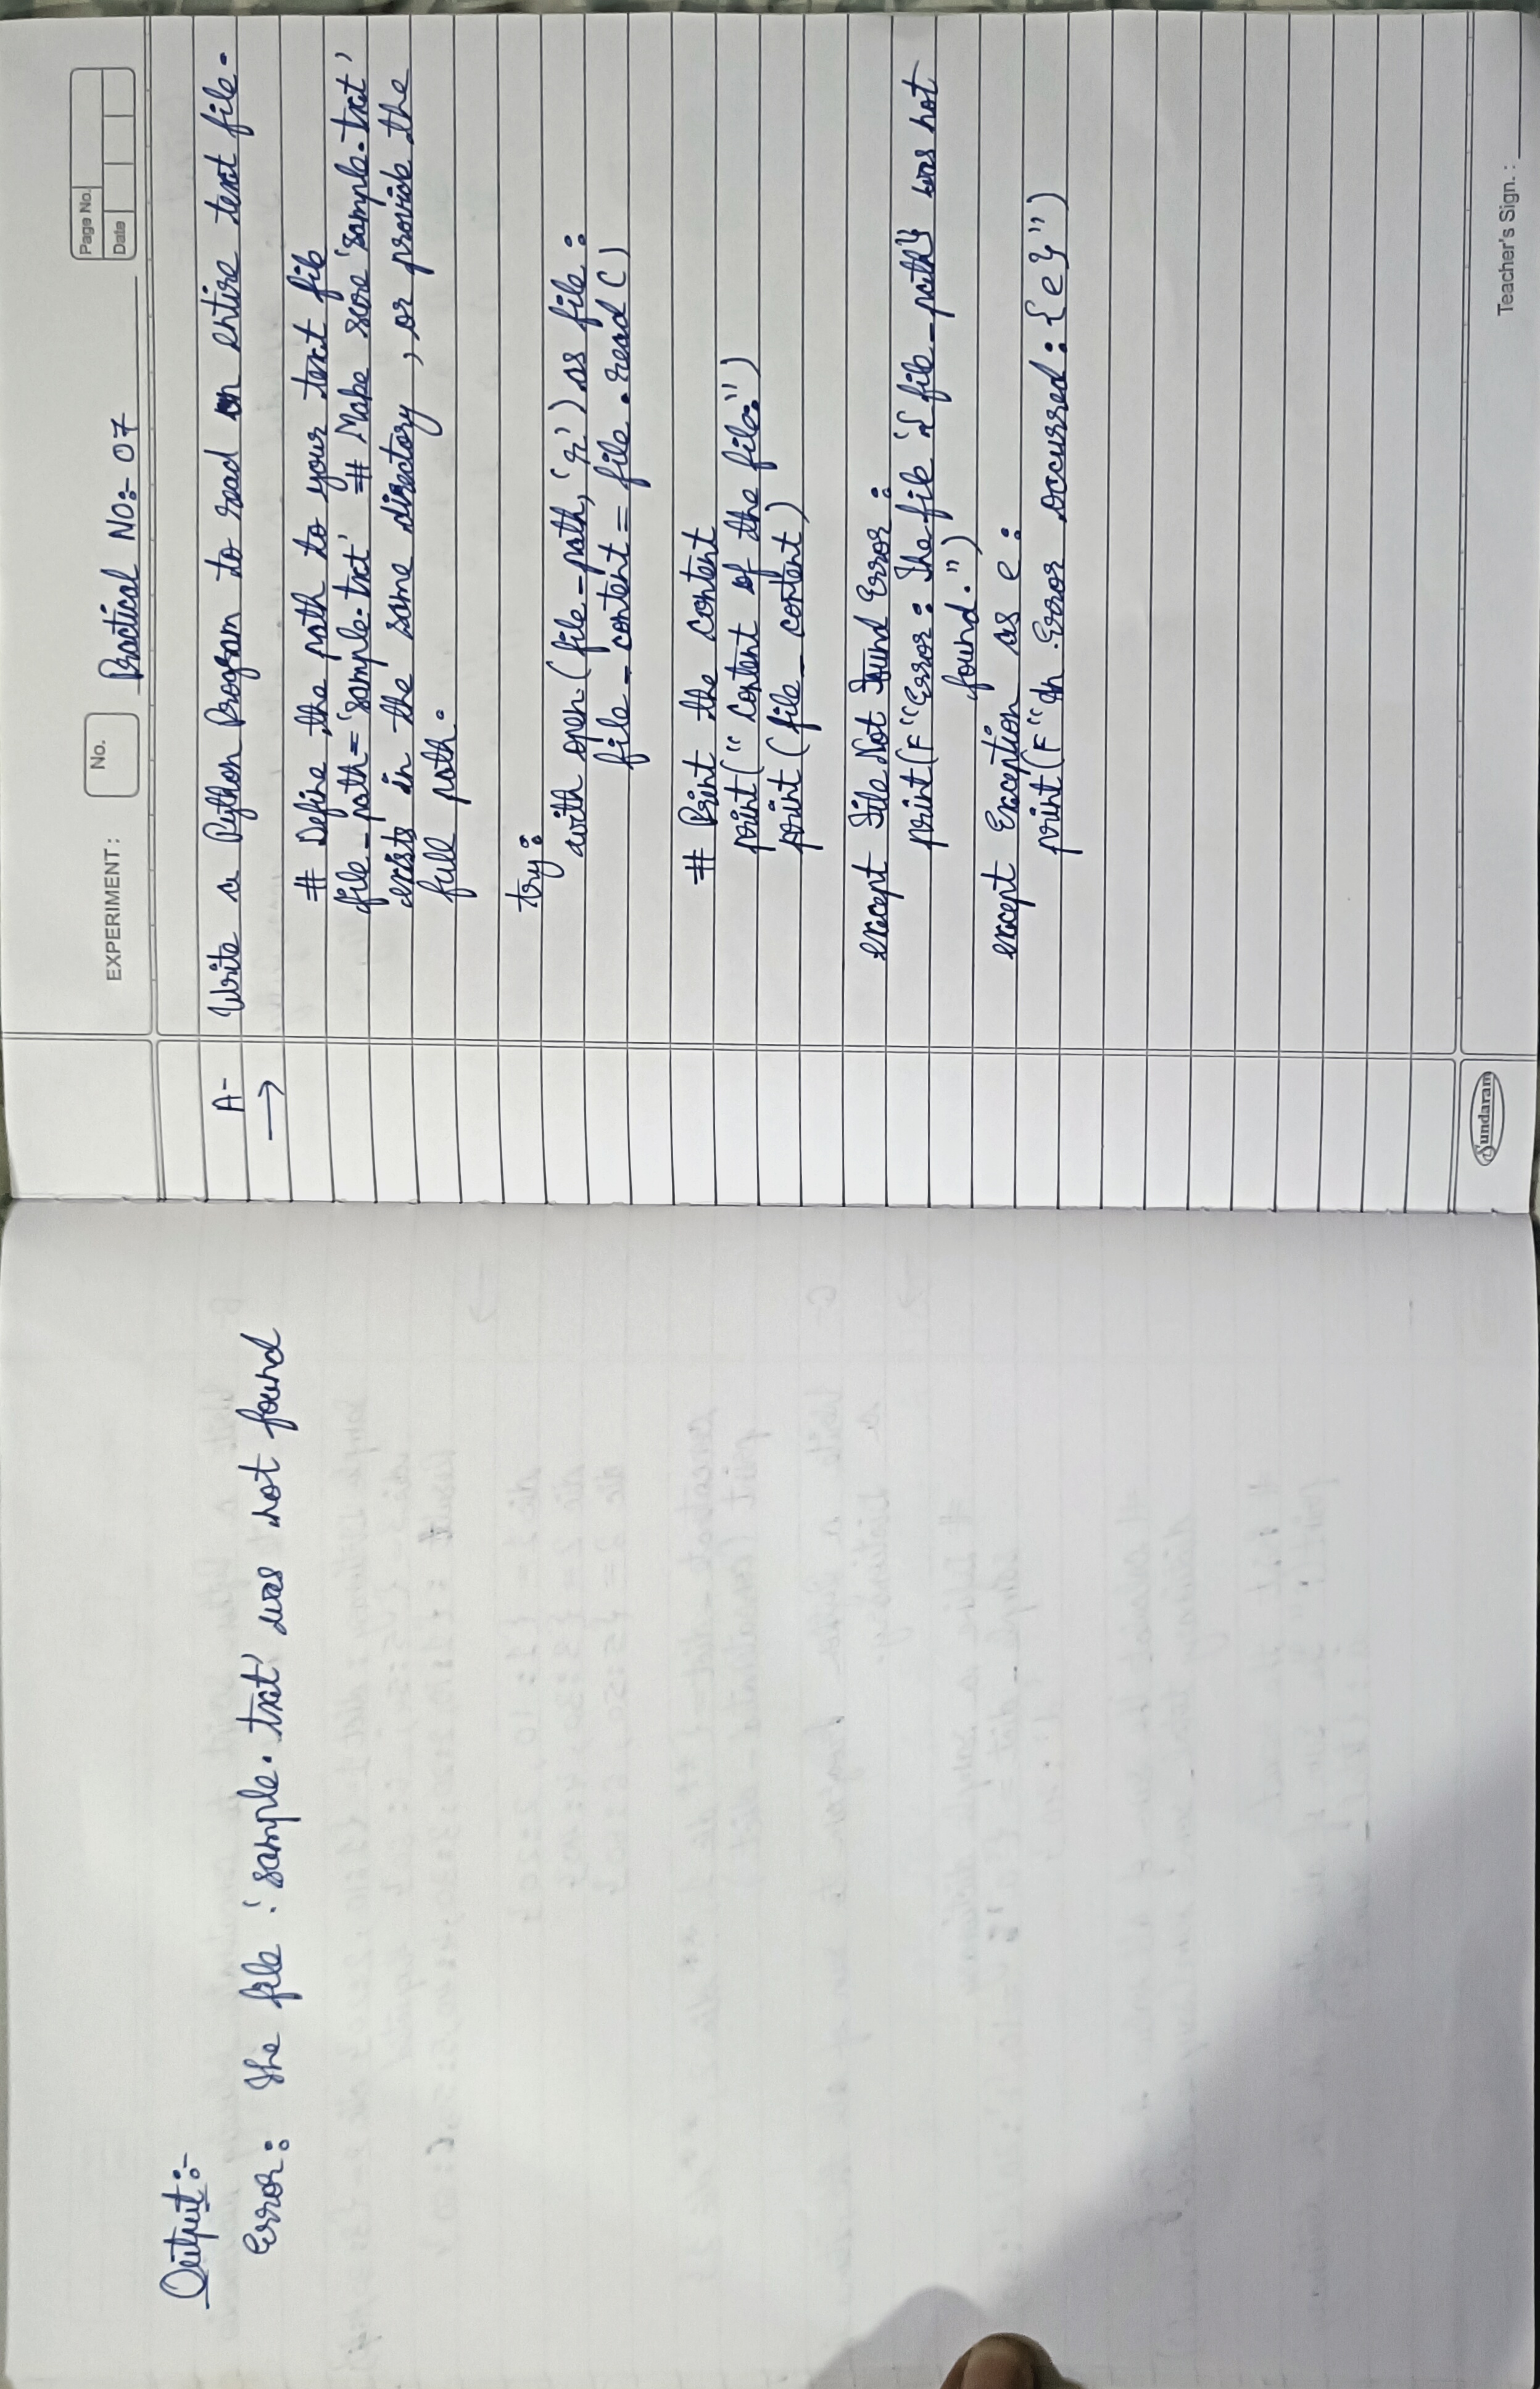 Output:-
Error: The file 'sample.txt' was not found
EXPERIMENT: No. Practical NO:- 07
Page No.
Date
A- Write a Python Program to read an entire text file.
→
# Define the path to your text file
file_path='sample.txt' # Make sure 'sample.txt'
exists in the same directory, or provide the
full path.
try:
with open(file_path, 'r') as file:
file_content = file.read()
# Print the content
print("Content of the file:")
print(file_content)
except File Not Found Error:
print(F"Error: The file '{file_path}' was not
found.")
except Exception as e:
print(F"An Error occurred: {e}")
Sundaram
Teacher's Sign. :